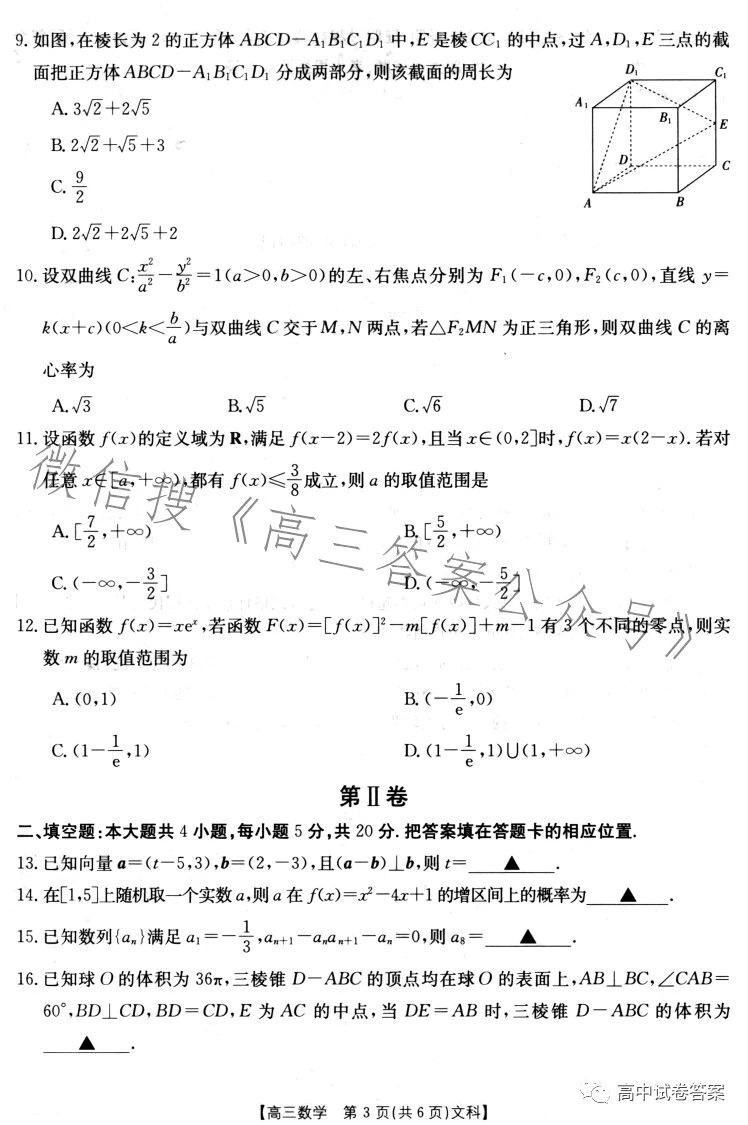 9. 如图,在棱长为 2 的正方体 ABCD-A₁B₁C₁D₁ 中,E 是棱 CC₁ 的中点,过 A,D₁,E 三点的截
面把正方体 ABCD-A₁B₁C₁D₁ 分成两部分,则该截面的周长为
A. 3√2+2√5
B. 2√2+√5+3
C. 9/2
D. 2√2+2√5+2
D₁
C₁
A₁
B₁
E
D
C
A
B
10. 设双曲线 C:x²/a²-y²/b²=1(a>0,b>0)的左、右焦点分别为 F₁(-c,0),F₂(c,0),直线 y=
k(x+c)(0<k<b/a)与双曲线 C 交于 M,N 两点,若△F₂MN 为正三角形,则双曲线 C 的离
心率为
A. √3 B. √5 C. √6 D. √7
11. 设函数 f(x)的定义域为 R,满足 f(x-2)=2f(x),且当 x∈(0,2]时,f(x)=x(2-x). 若对
任意 x∈[a,+∞),都有 f(x)≤3/8成立,则 a 的取值范围是
A. [7/2,+∞) B. [5/2,+∞)
C. (-∞,-3/2] D. (-∞,-5/2]
微信搜《高三答案公众号》
12. 已知函数 f(x)=xeˣ,若函数 F(x)=[f(x)]²-m[f(x)]+m-1 有 3 个不同的零点,则实
数 m 的取值范围为
A. (0,1) B. (-1/e,0)
C. (1-1/e,1) D. (1-1/e,1)∪(1,+∞)
第Ⅱ卷
二、填空题:本大题共 4 小题,每小题 5 分,共 20 分. 把答案填在答题卡的相应位置.
13. 已知向量 a=(t-5,3),b=(2,-3),且(a-b)⊥b,则 t=▲.
14. 在[1,5]上随机取一个实数 a,则 a 在 f(x)=x²-4x+1 的增区间上的概率为▲.
15. 已知数列{aₙ}满足 a₁=-1/3,aₙ₊₁-aₙaₙ₊₁-aₙ=0,则 a₈=▲.
16. 已知球 O 的体积为 36π,三棱锥 D-ABC 的顶点均在球 O 的表面上,AB⊥BC,∠CAB=
60°,BD⊥CD,BD=CD,E 为 AC 的中点,当 DE=AB 时,三棱锥 D-ABC 的体积为
▲.
高中试卷答案
【高三数学 第 3 页(共 6 页)文科】